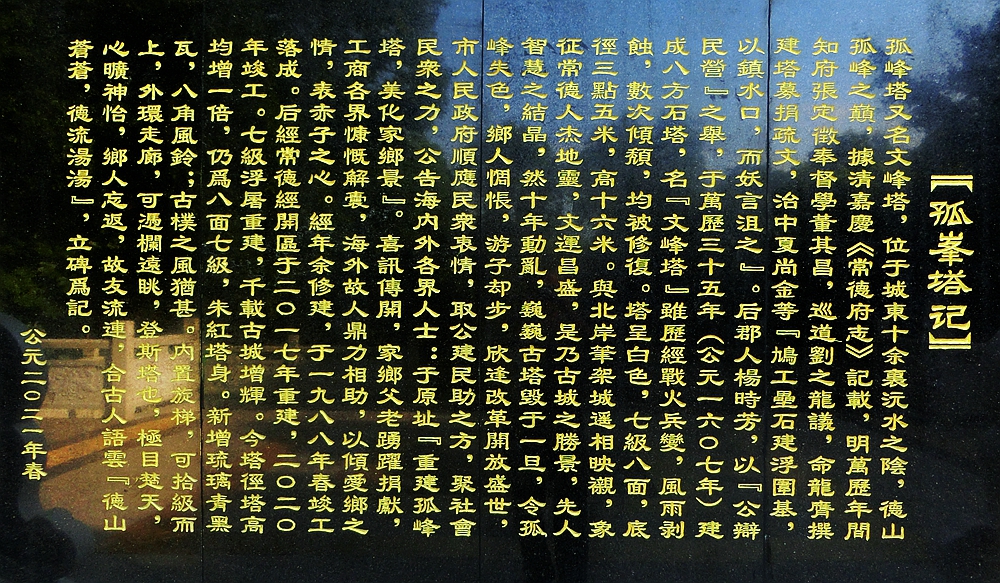 【孤峯塔记】
孤峰塔又名文峰塔，位于城東十余裏沅水之陰，德山
孤峰之巔，據清嘉慶《常德府志》記載，明萬歷年間
知府張定徵奉督學董其昌，巡道劉之龍議，命龍膺撰
建塔募捐疏文，治中夏尚金等『鳩工壘石建浮圖基，
以鎮水口，而妖言沮之』。后郡人楊時芳，以『公辯
民營』之舉，于萬歷三十五年（公元一六०七年）建
成八方石塔，名『文峰塔』雖歷經戰火兵變，風雨剥
蝕，數次傾頹，均被修復。塔呈白色，七級八面，底
徑三點五米，高十六米。與北岸筆架城遥相映襯，象
征常德人杰地靈，文運昌盛，是乃古城之勝景，先人
智慧之結晶，然十年動亂，巍巍古塔毀于一旦，令孤
峰失色，鄉人惆悵，游子却步，欣逢改革開放盛世，
市人民政府順應民衆衷情，取公建民助之方，聚社會
民衆之力，公告海内外各界人士：于原址『重建孤峰
塔，美化家鄉景』。喜訊傳開，家鄉父老踴躍捐獻，
工商各界慷慨解囊，海外故人鼎力相助，以傾愛鄉之
情，表赤子之心。經年余修建，于一九八八年春竣工
落成。后經常德經開區于二०一七年重建，二०二०
年竣工。七級浮屠重建，千載古城增輝。今塔徑塔高
均增一倍，仍爲八面七級，朱紅塔身。新增琉璃青黑
瓦，八角風鈴；古樸之風猶甚。内置旋梯，可拾級而
上，外環走廊，可憑欄遠眺，登斯塔也，極目楚天，
心曠神怡，鄉人忘返，故友流連，合古人語雲『德山
蒼蒼，德流湯湯』，立碑爲記。
公元二०二一年春